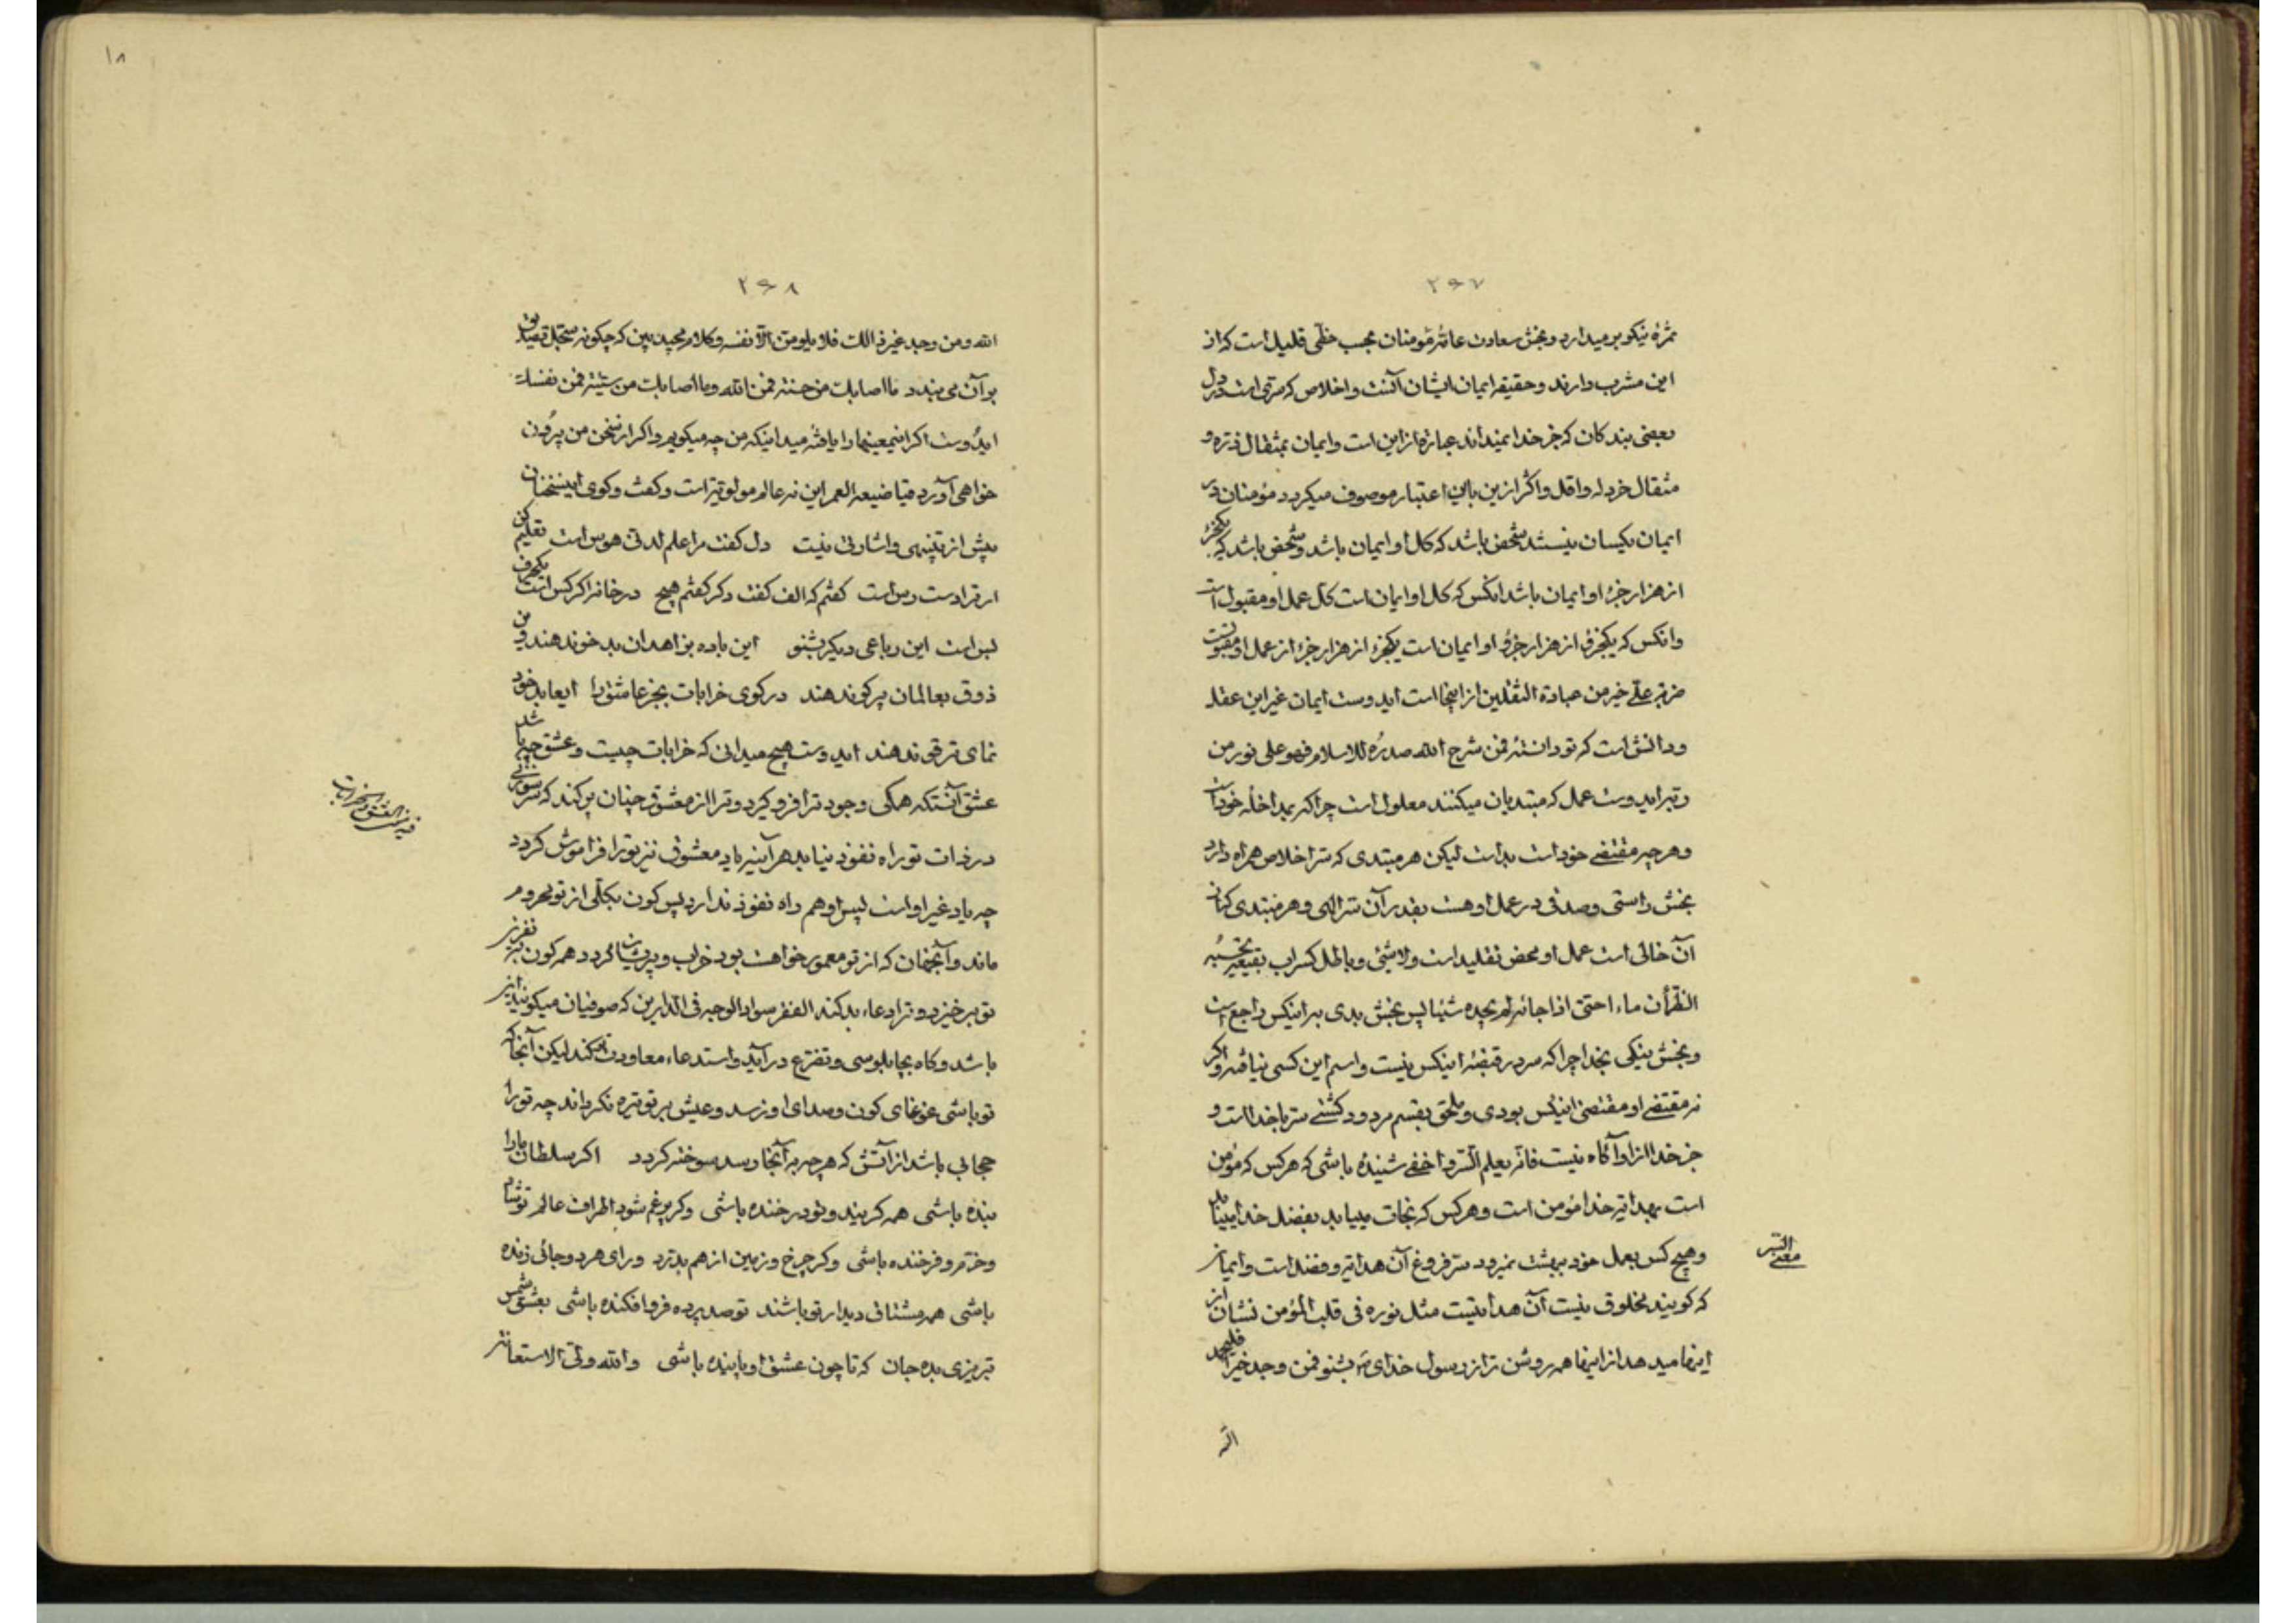 ۲۹۷
ثمرهٔ نیکو بر میدارد و بخش سعادت عامّهٔ مؤمنان بحسب حظّی قلیل است که از
این مشرب دارند و حقیقه ایمان ایشان آنست و اخلاص که سرّی است در دل
بعضی بندکان که جز خدا نمیداند عبارة از این است و ایمان بمثقال ذرّه و
مثقال خردله و اقل و اکثر از ین باین اعتبار موصوف میکردد مؤمنان در
ایمان یکسان نیستند شخصی باشد که کل او ایمان باشد و شخصی باشد که یکجزء
از هزار جزء او ایمان باشد انکس که کل او ایمان است کل عمل او مقبول است
و انکس که یکجزء از هزار جزء او ایمان است یکجزء از هزار جزء از عمل او مقبولست
ضربة علیّ خیر من عبادة الثقلین از اینجا است ایدوست ایمان غیر این عقد
و دانش است که تو دانستهٔ فمن شرح الله صدره للاسلام فهو علی نور من
ربّه ایدوست عمل که مبتدیان میکنند معلول است چرا که بمداخلهٔ خودست
و هر چه مقتضی خود است بد است لیکن هر مبتدی که سرّ اخلاص همراه دارد
بخش راستی و صدقی در عمل او هست بقدر آن سرّ الهی و هر مبتدی که از
آن خالی است عمل او محض تقلید است و لاشیٔ و باطل کسراب بقیعة یحسبه
الظمآن ماء احتی اذا جائه لم یجده شیئا پس بخش بدی براینکس راجع است
و بخش نیکی بخدا چرا که سر در قبضهٔ اینکس نیست و اسم این کسی نیافته و اکر
نه مقتضی او مقتضی اینکس بودی و ملحق بقسم مردود کشتی سرّ با خدا است و
جز خدا از او آکاه نیست فانّه یعلم السّر و اخفی شنیده باشی که هر کس که مؤمن
است بهدایة خدا مؤمن است و هر کس که نجات مییابد بفضل خدا مییابد
و هیچ کس بعمل خود ببهشت نمیرود سرّ فروغ آن هدایة و فضل است و ایمان
معنی السّر
که کویند مخلوق نیست آن هدایتست مثل نوره فی قلب المؤمن نشان از
اینها میدهد از اینها همه روشن تر از رسول خدای ص بشنو فمن وجد خیرا فلیحمد
الله
۱۸
۲۹۸
الله و من وجد غیر ذالک فلا یلومنّ الّا نفسه و کلام مجید ببین که چکونه سجّل تصدیق
بر آن می بندد ما اصابک من حسنة فمن الله و ما اصابک من سیّئة فمن نفسک
ایدوست اکر اینمعینها را یافتهٔ میداینکه من چه میکویم و اکر از سخن من بیرون
خواهی آورد فیا ضیعة العمر این نه عالم مولویّة است و کفت و کوی اینسخنان
بیش از تنبیهی و اشارتی نیست دل کفت مرا علم لدنی هوس است تعلیم کن
ار ترا دسترس است کفتم که الف کفت دکر کفتم هیچ در خانه اکر کس است یکحرف
بس است این رباعی دیکر بشنو این باده بزاهدان بدخو ندهند و من
ذوق بعالمان پرکو ندهند در کوی خرابات بجز عاشق را ایعابد خود
نمای ترقو ندهند ایدوست هیچ میدانی که خرابات چیست و عشق چه باشد
عشق آنستکه همکی وجود ترا فرو کیرد و ترا از معشوق چنان پر کند که سر سوزنی
در ذات تو راه نفوذ نیابد هر آینه یاد معشوق نیز تو را فراموش کردد
چه یاد غیر او است پس او هم راه نفوذ ندارد پس کون بکلّی از تو محروم
ماند و آنجهان که از تو معمور خواهد بود خراب و پریشان کردد همه کون بنفرین
تو بر خیزد و ترا دعاء بد کند الفقر سواد الوجه فی الدّارین که صوفیان میکویند این
باشد و کاه بچاپلوسی و تضرّع در آید و استدعاء معاودت کند لیکن آنجا که
تو باشی غوغای کون و صدای او نرسد و عیش بر تو تیره نکرداند چه تو را
حجابی باشد از آتش که هر چه به آنجا رسد سوخته کردد اکر سلطان ما را
بنده باشی همه کریند و تو در خنده باشی و کر پر غم شود اطراف عالم تو شاد
و خرّم و فرخنده باشی و کر چرخ و زمین از هم بدرّد ورای هر دو جائی زنده
باشی همه مشتاق دیدار تو باشند تو صد پرده فرو افکنده باشی بعشق شمس
تبریزی بده جان که تا چون عشق او پاینده باشی و الله ولیّ الاستعانه